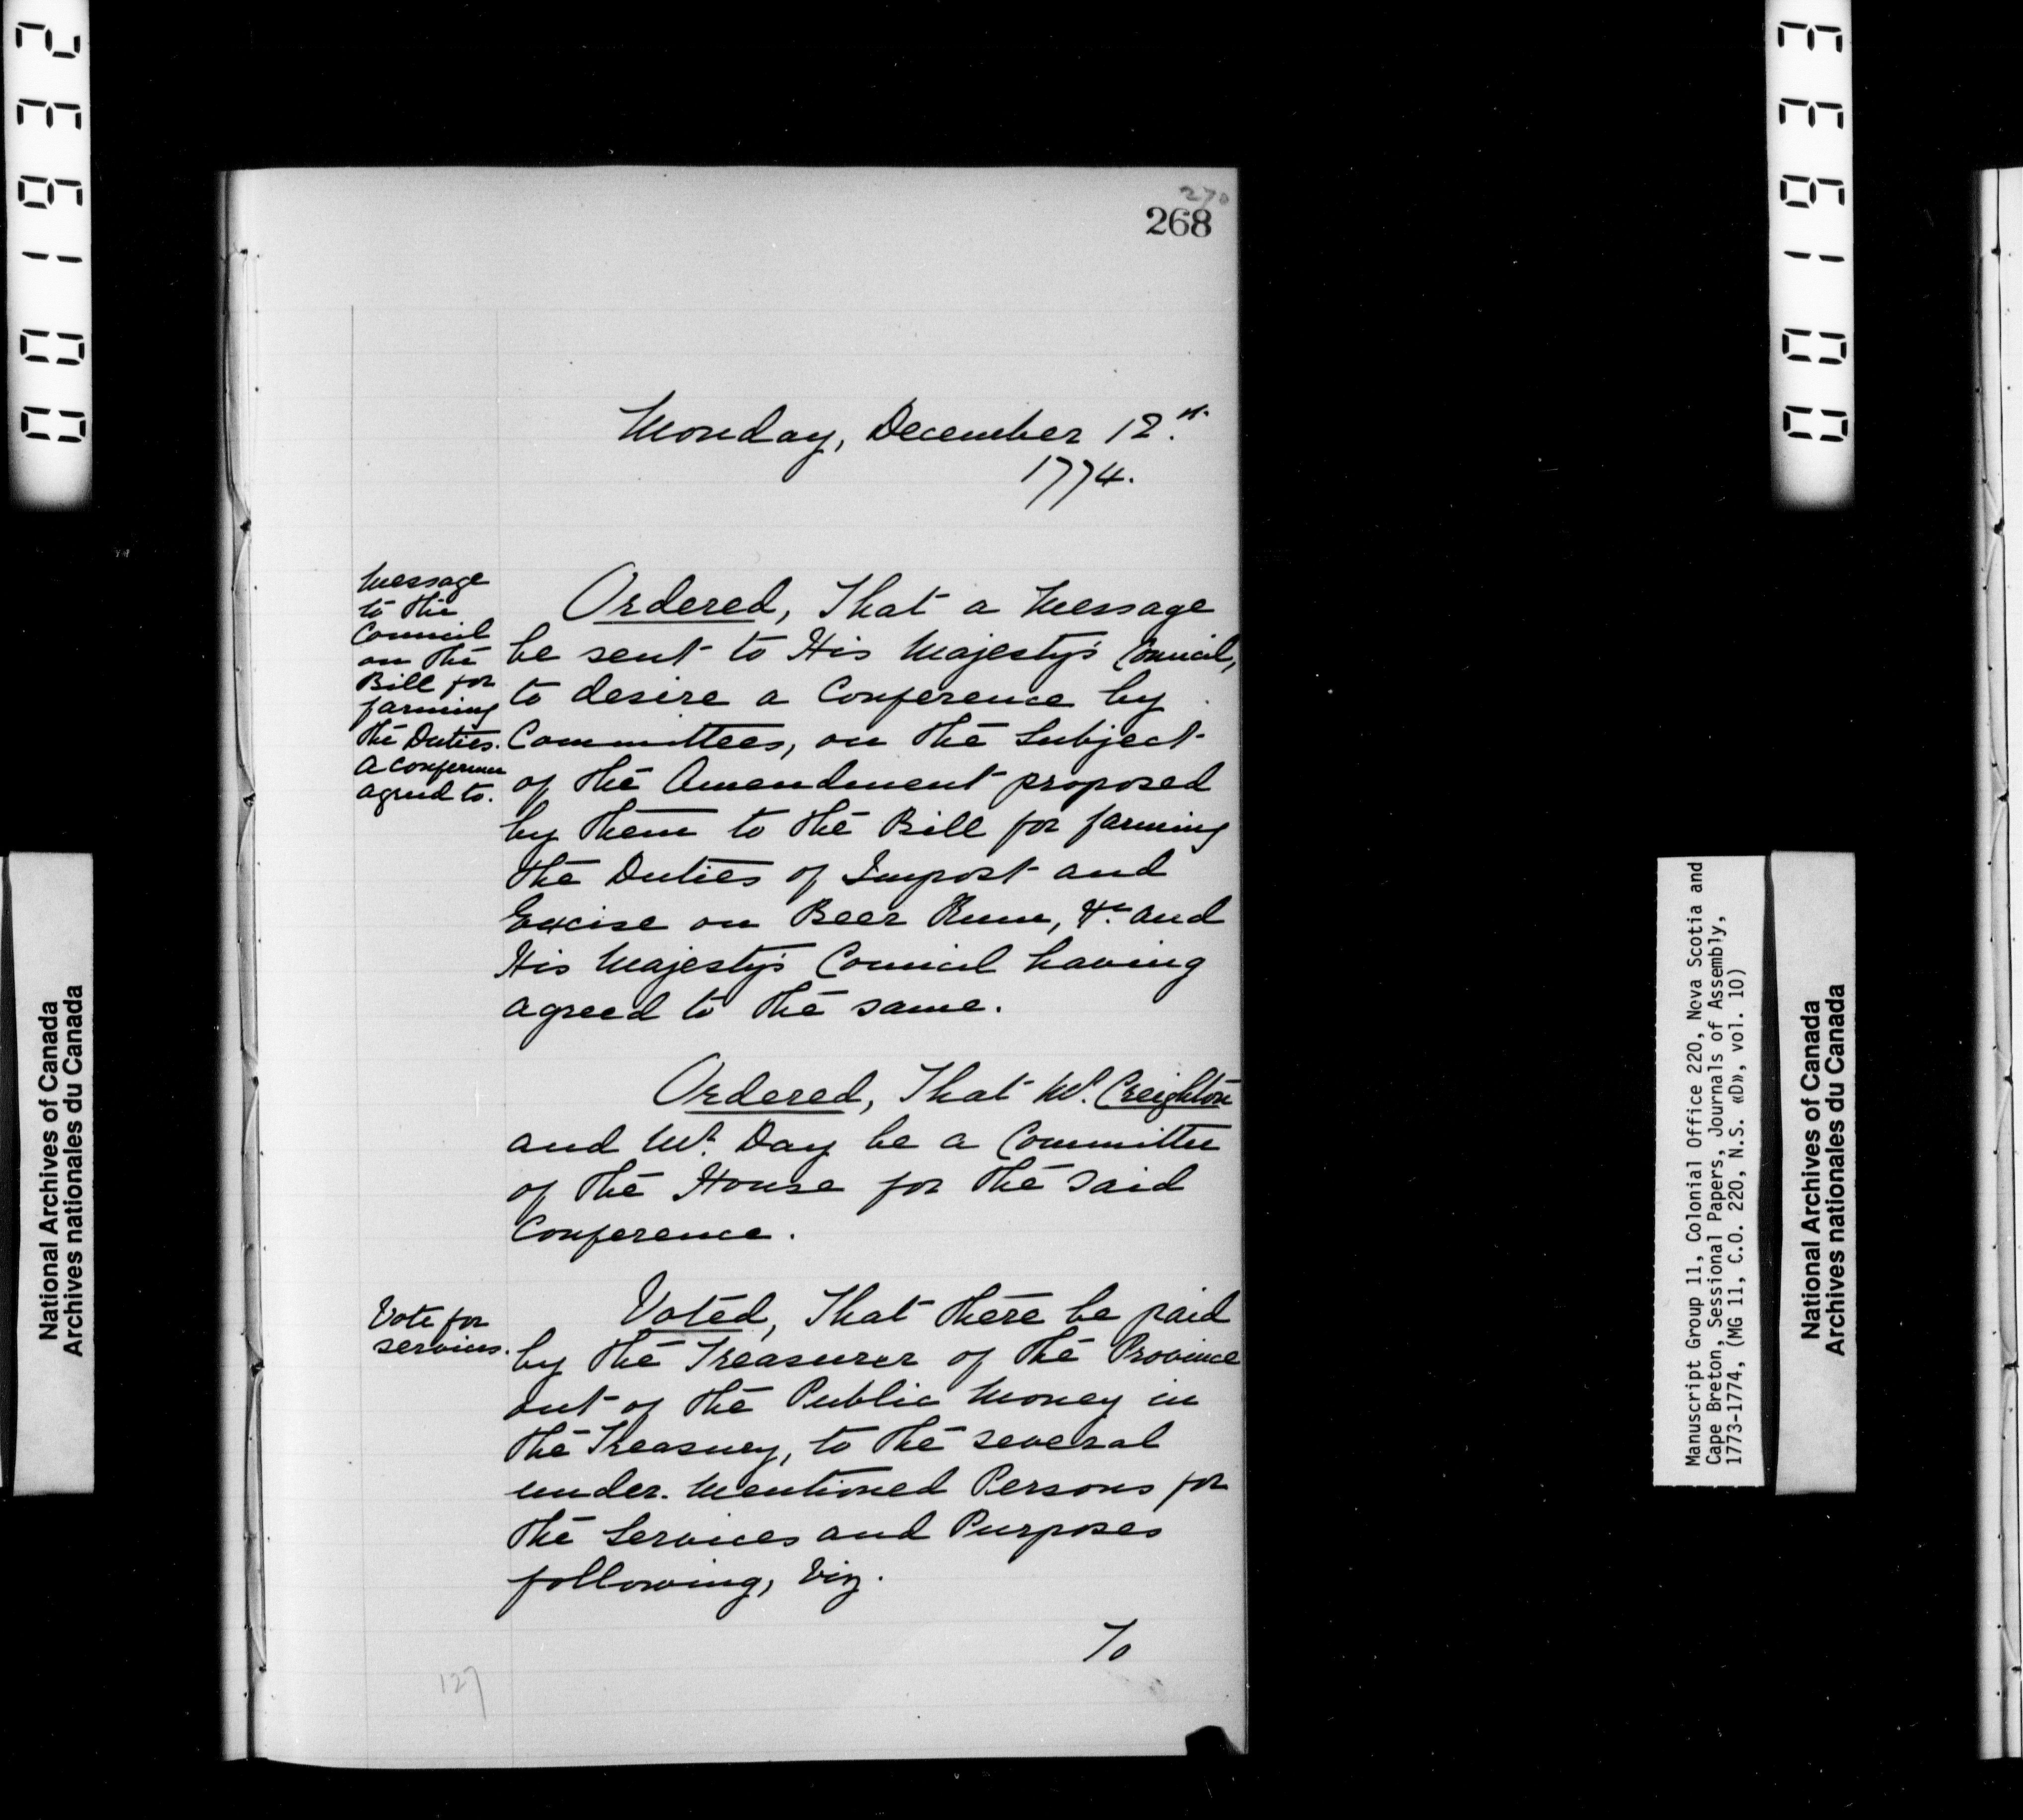 270
268
Monday, December 12.th
1774.
Message
to the
Council
on the
Bill for
farming
the Duties.
A Conference
agreed to.
Ordered, That a Message
be sent to His Majesty's Council,
to desire a Conference by
Committees, on the Subject
of the Amendment proposed
by them to the Bill for farming
the Duties of Impost and
Excise on Beer Rum, &c. and
His Majesty's Council having
agreed to the same.
Ordered, That Mr. Creighton
and Mr. Day be a Committee
of the House for the said
Conference.
Vote for
services.
Voted, That there be paid
by the Treasurer of the Province
out of the Public Money in
the Treasury, to the several
under-mentioned Persons for
the Services and Purposes
following, Viz.
To
127
001932
National Archives of Canada
Archives nationales du Canada
001933
Manuscript Group 11, Colonial Office 220, Nova Scotia and
Cape Breton, Sessional Papers, Journals of Assembly,
1773-1774, (MG 11, C.O. 220, N.S. «D», vol. 10)
National Archives of Canada
Archives nationales du Canada